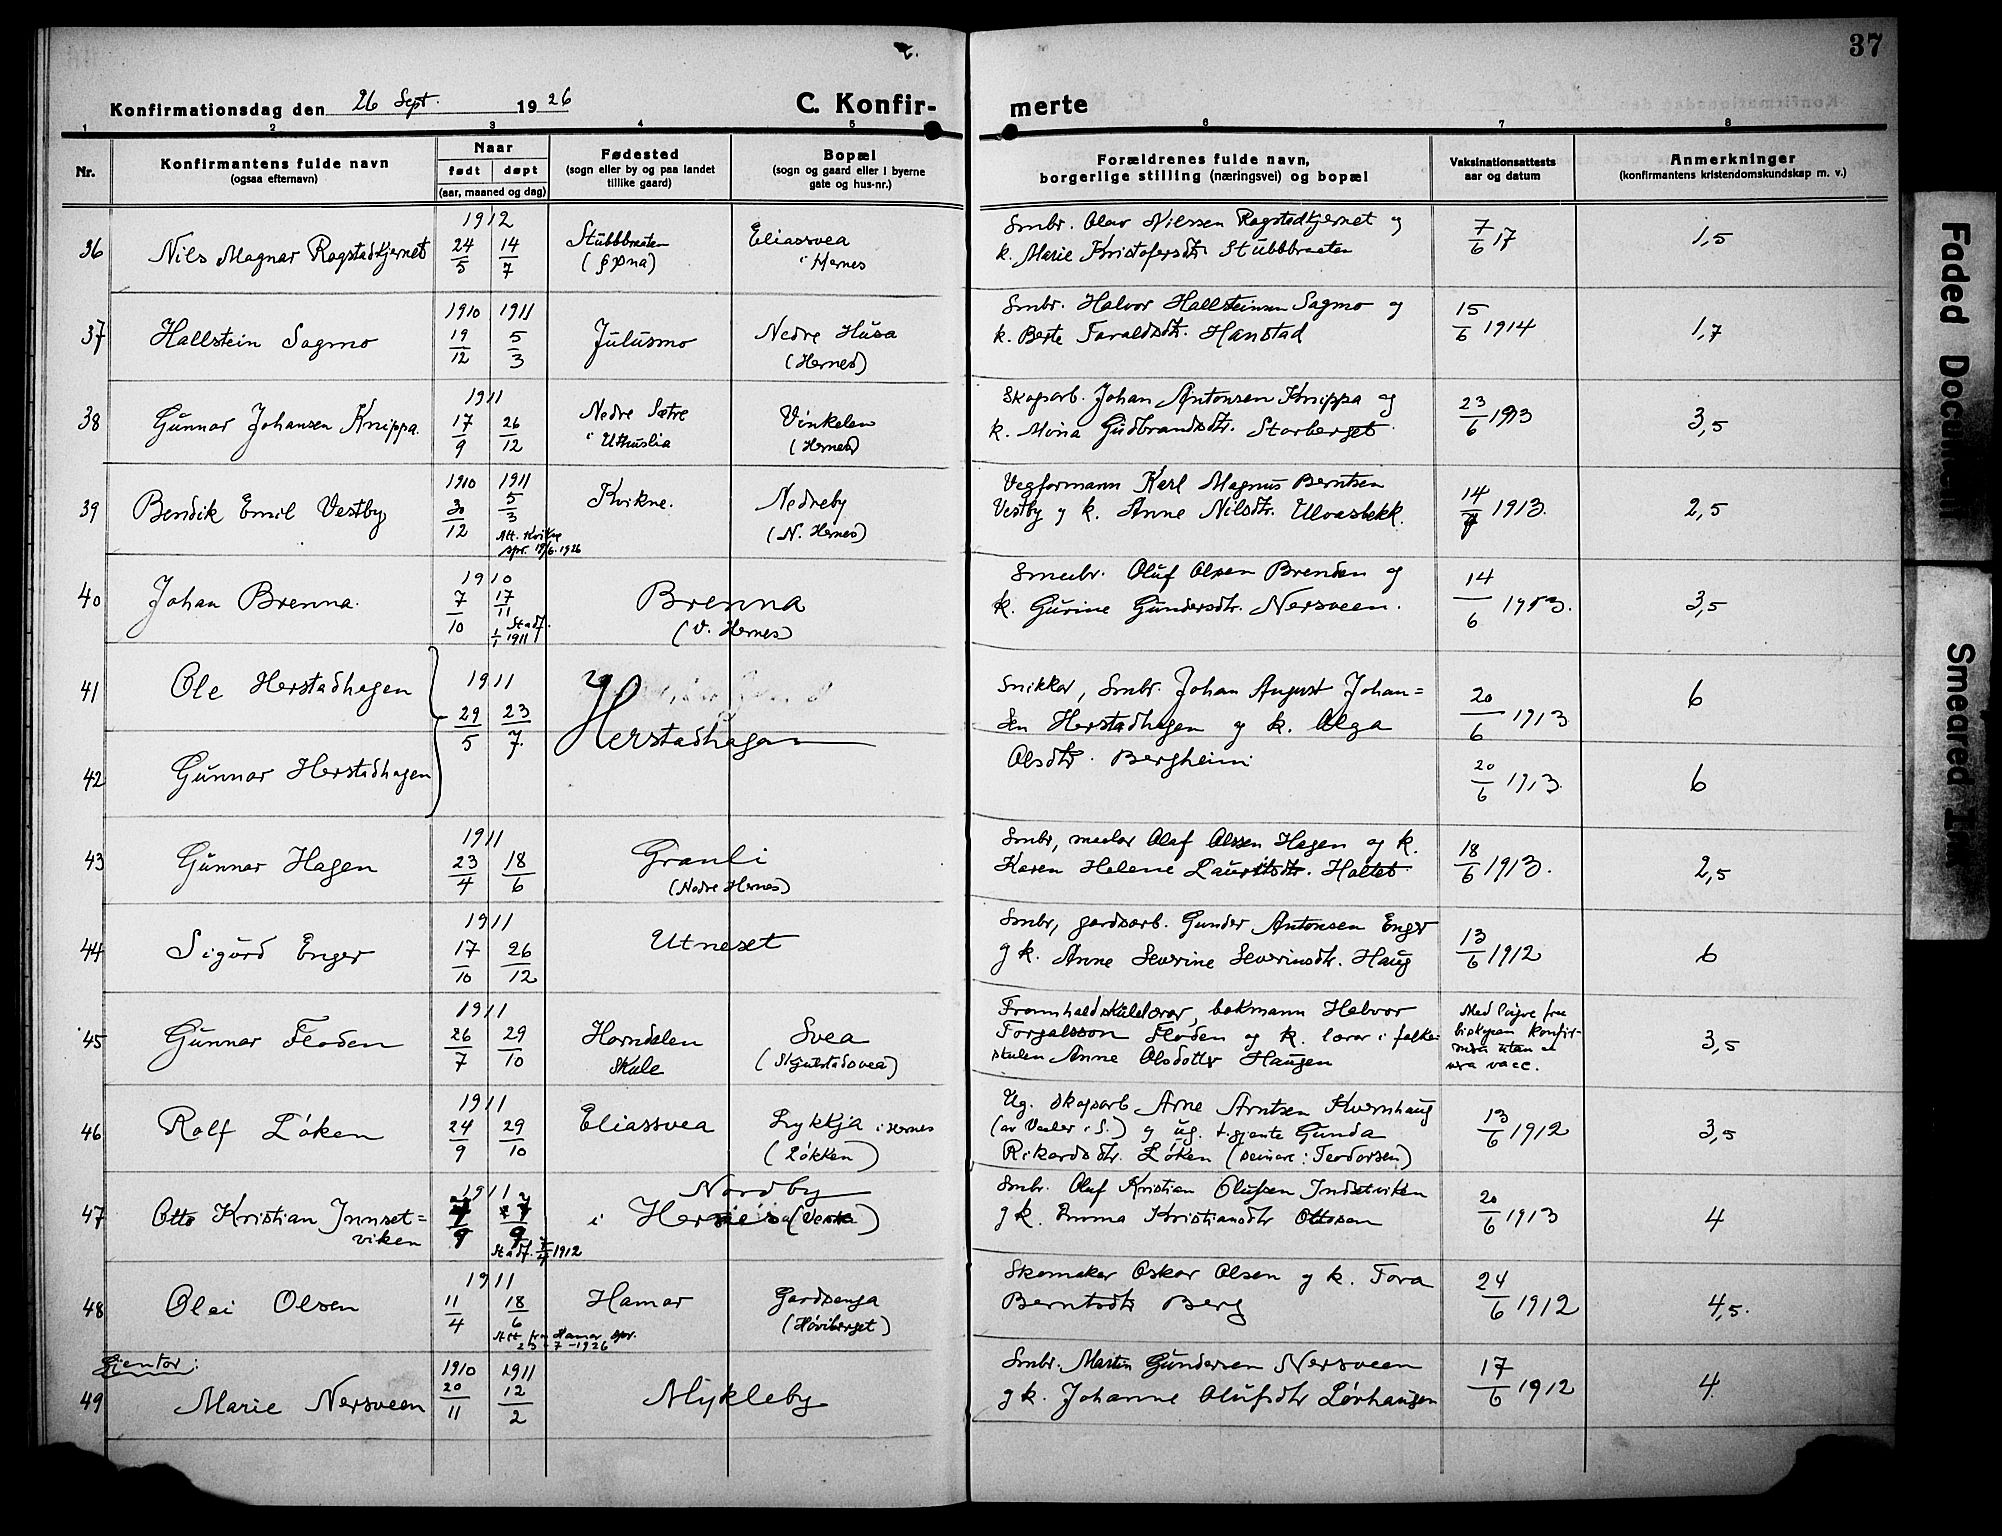 37
Konfirmationsdag den 26 Sept. 1926
C. Konfir-
merte
1 2 3 4 5 6 7 8
Nr.
Konfirmantens fulde navn
(ogsaa efternavn)
Naar
født døpt
(aar, maaned og dag)
Fødested
(sogn eller by og paa landet
tillike gaard)
Bopæl
(sogn og gaard eller i byerne
gate og hus-nr.)
Forældrenes fulde navn,
borgerlige stilling (næringsvei) og bopæl
Vaksinationsattests
aar og datum
Anmerkninger
(konfirmantens kristendomskundskap m. v.)
36 Nils Magnar Rogstadkjernet
1912
24/5 14/7
Stubbbraaten
Eliassvea
i Hernes
Smbr. Olav Nilssen Rogstadkjernet og
k. Marie Kristofersdtr. Stubbbraaten
7/6 17
1,5
37 Hallstein Sagmo
1910 1911
19/12 5/3
Julusmo
Nedre Husa
(Hernes)
Smbr. Halvor Hallsteinsen Sagmo og
k. Berte Taraldsdtr. Hanstad
15/6 1914
1,7
38 Gunnar Johansen Knippa.
1911
17/9 26/12
Nedre Sætre
i Uthuslia
Vinkelen
(Hernes)
Skogsarb. Johan Antonsen Knippa og
k. Mina Gudbrandsdtr. Storberget.
23/6 1913
3,5
39 Bendik Emil Vestby
1910 1911
30/12 5/3
Att. Kvikne
spr. 19/6.1926
Kvikne.
Nedreby
(N. Hernes)
Vegformann Karl Magnus Berntsen
Vestby og k. Anne Nilsdtr. Ulvasbekk.
14/7 1913.
2,5
40 Johan Brenna.
1910
7/10 17/11
Stadf.
1/1 1911
Brenna
(V. Hernes)
Smeubr. Oluf Olsen Brenden og
k. Gurine Gundersdtr. Nersveen.
14/6 1913.
3,5
41 Ole Herstadhagen
1911
29/5 23/7.
Herstadhagen
Snikkar, Smbr. Johan August Johan=
sen Herstadhagen og k. Olga
Olsdtr. Bergheim
20/6 1913
6
42 Gunnar Herstadhagen
20/6 1913.
6
43 Gunnar Hagen
1911
23/4 18/6
Granli
(Nedre Hernes)
Smbr, maalar Olaf Olssen Hagen og k.
Karen Helene Lauritsdtr. Holtet
18/6 1913.
2,5
44 Sigurd Enger
1911
17/10 26/12
Utneset
Smbr, gardsarb. Gunder Antonsen Enger
og k. Anne Severine Severinsdtr. Haug
13/6 1912
6
45 Gunnar Floden
1911
26/7 29/10
Horndalen
Skule
Svea
(Skjulstadsvea)
Framhaldskulelærar, bokmann Halvor
Torgalsson Floden og k. lærar i folke
skulen Anne Olsdotter Haugen
Med løyve fraa
biskopen konfir-
mera utan aa
vera vacc.
3,5
46 Rolf Løken
1911
24/9 29/10
Eliassvea
Lykkja i Hernes
(Løkken)
Ug. skogsarb Arne Arntsen Kvernhaug
(av Vaaler i S.) og ug. tgjente Gunda
Rikardsdtr. Løken (seinare: Teodorsen)
13/6 1912
3,5
47 Otto Kristian Innset=
viken
1911
9 9
Stadf. 1912
Nordby
i Hernes
Smbr. Oluf Kristian Olufsen Indsetviken
og k. Emma Kristiansdtr Ottosen
20/6 1913
4
48 Olai Olsen
1911
11/4 18/6
Att. fra Hamar spr.
25-7-1926
Hamar
Gardsenga
(Høviberget)
Skomaker Oskar Olsen og k. Tora
Berntsdtr Berg
24/6 1912
4,5.
Gjentor:
49 Marie Nersveen
1910 1911
20/11 12/2
Mykleby
Smbr. Martin Gundersen Nersveen
og k. Johanne Olufsdtr Lørhaugen
17/6 1912
4.
Faded Document
Smeared Ink